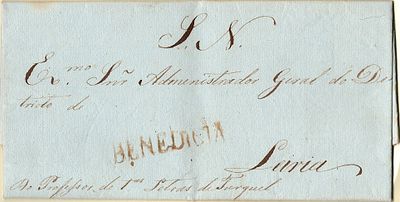 S. N.
Ex.mo Snr. Administrador Geral do Des
tricto de
BENEDICTA
Laria
Do Professor de 1as Letras de Turquel